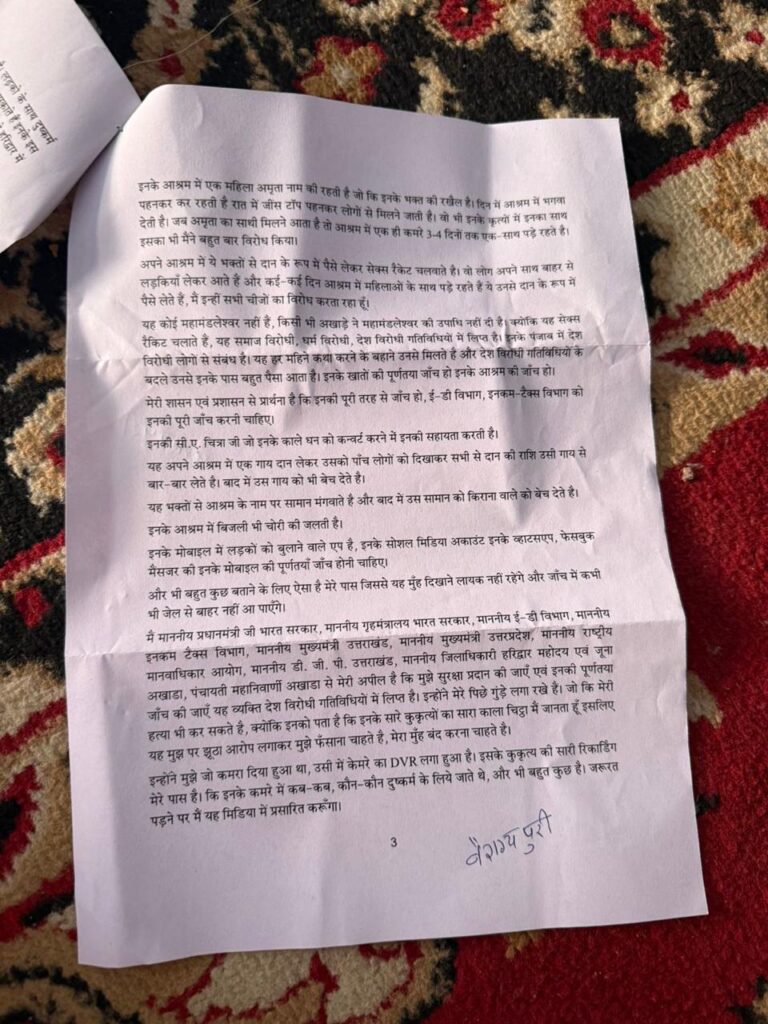 लड़कों के साथ दुष्कर्म
हरिद्वार में
इनके आश्रम में एक महिला अमृता नाम की रहती है जो कि इनके भक्त की रखैल है। दिन में आश्रम में भगवा
पहनकर कर रहती है रात में जींस टॉप पहनकर लोगों से मिलने जाती है। वो भी इनके कृत्यों में इनका साथ
देती है। जब अमृता का साथी मिलने आता है तो आश्रम में एक ही कमरे 3-4 दिनों तक एक-साथ पड़े रहते है।
इसका भी मैंने बहुत बार विरोध किया।
अपने आश्रम में ये भक्तों से दान के रूप में पैसे लेकर सेक्स रैकेट चलवाते है। वो लोग अपने साथ बाहर से
लड़कियाँ लेकर आते हैं और कई-कई दिन आश्रम में महिलाओं के साथ पड़े रहते हैं ये उनसे दान के रूप में
पैसे लेते हैं, मैं इन्हीं सभी चीजों का विरोध करता रहा हूँ।
यह कोई महामंडलेश्वर नहीं है, किसी भी अखाड़े ने महामंडलेश्वर की उपाधि नहीं दी है। क्योंकि यह सेक्स
रैकिट चलाते हैं, यह समाज विरोधी, धर्म विरोधी, देश विरोधी गतिविधियों में लिप्त है। इनके पंजाब में देश
विरोधी लोगों से संबंध है। यह हर महिने कथा करने के बहाने उनसे मिलते है और देश विरोधी गतिविधियों के
बदले उनसे इनके पास बहुत पैसा आता है। इनके खातों की पूर्णतया जाँच हो इनके आश्रम की जाँच हो।
मेरी शासन एवं प्रशासन से प्रार्थना है कि इनकी पूरी तरह से जाँच हो, ई-डी विभाग, इनकम-टैक्स विभाग को
इनकी पूरी जाँच करनी चाहिए।
इनकी सी.ए. चित्रा जी जो इनके काले धन को कन्वर्ट करने में इनकी सहायता करती है।
यह अपने आश्रम में एक गाय दान लेकर उसको पाँच लोगों को दिखाकर सभी से दान की राशि उसी गाय से
बार-बार लेते है। बाद में उस गाय को भी बेच देते है।
यह भक्तों से आश्रम के नाम पर सामान मंगवाते है और बाद में उस सामान को किराना वाले को बेच देते है।
इनके आश्रम में बिजली भी चोरी की जलती है।
इनके मोबाइल में लड़कों को बुलाने वाले एप है, इनके सोशल मिडिया अकाउंट इनके व्हाटसएप, फेसबुक
मैसजर की इनके मोबाइल की पूर्णतयाँ जाँच होनी चाहिए।
और भी बहुत कुछ बताने के लिए ऐसा है मेरे पास जिससे यह मुँह दिखाने लायक नहीं रहेंगे और जाँच में कभी
भी जेल से बाहर नहीं आ पाएँगे।
मैं माननीय प्रधानमंत्री जी भारत सरकार, माननीय गृहमंत्रालय भारत सरकार, माननीय ई-डी विभाग, माननीय
इनकम टैक्स विभाग, माननीय मुख्यमंत्री उत्तराखंड, माननीय मुख्यमंत्री उत्तरप्रदेश, माननीय राष्ट्रीय
मानवाधिकार आयोग, माननीय डी. जी. पी. उत्तराखंड, माननीय जिलाधिकारी हरिद्वार महोदय एवं जूना
अखाडा, पंचायती महानिर्वाणी अखाडा से मेरी अपील है कि मुझे सुरक्षा प्रदान की जाएँ एवं इनकी पूर्णतया
जाँच की जाएँ यह व्यक्ति देश विरोधी गतिविधियों में लिप्त है। इन्होने मेरे पिछे गुंड़े लगा रखे हैं। जो कि मेरी
हत्या भी कर सकते है, क्योंकि इनको पता है कि इनके सारे कुकृत्यों का सारा काला चिट्ठा मैं जानता हूँ इसलिए
यह मुझ पर झूठा आरोप लगाकर मुझे फँसाना चाहते है, मेरा मुँह बंद करना चाहते है।
इन्होंने मुझे जो कमरा दिया हुआ था, उसी में केमरे का DVR लगा हुआ है। इसके कुकृत्य की सारी रिकार्डिंग
मेरे पास है। कि इनके कमरे में कब-कब, कौन-कौन दुष्कर्म के लिये जाते थे, और भी बहुत कुछ है। जरूरत
पड़ने पर मैं यह मिडिया में प्रसारित करूँगा।
3
वैराग्य पुरी